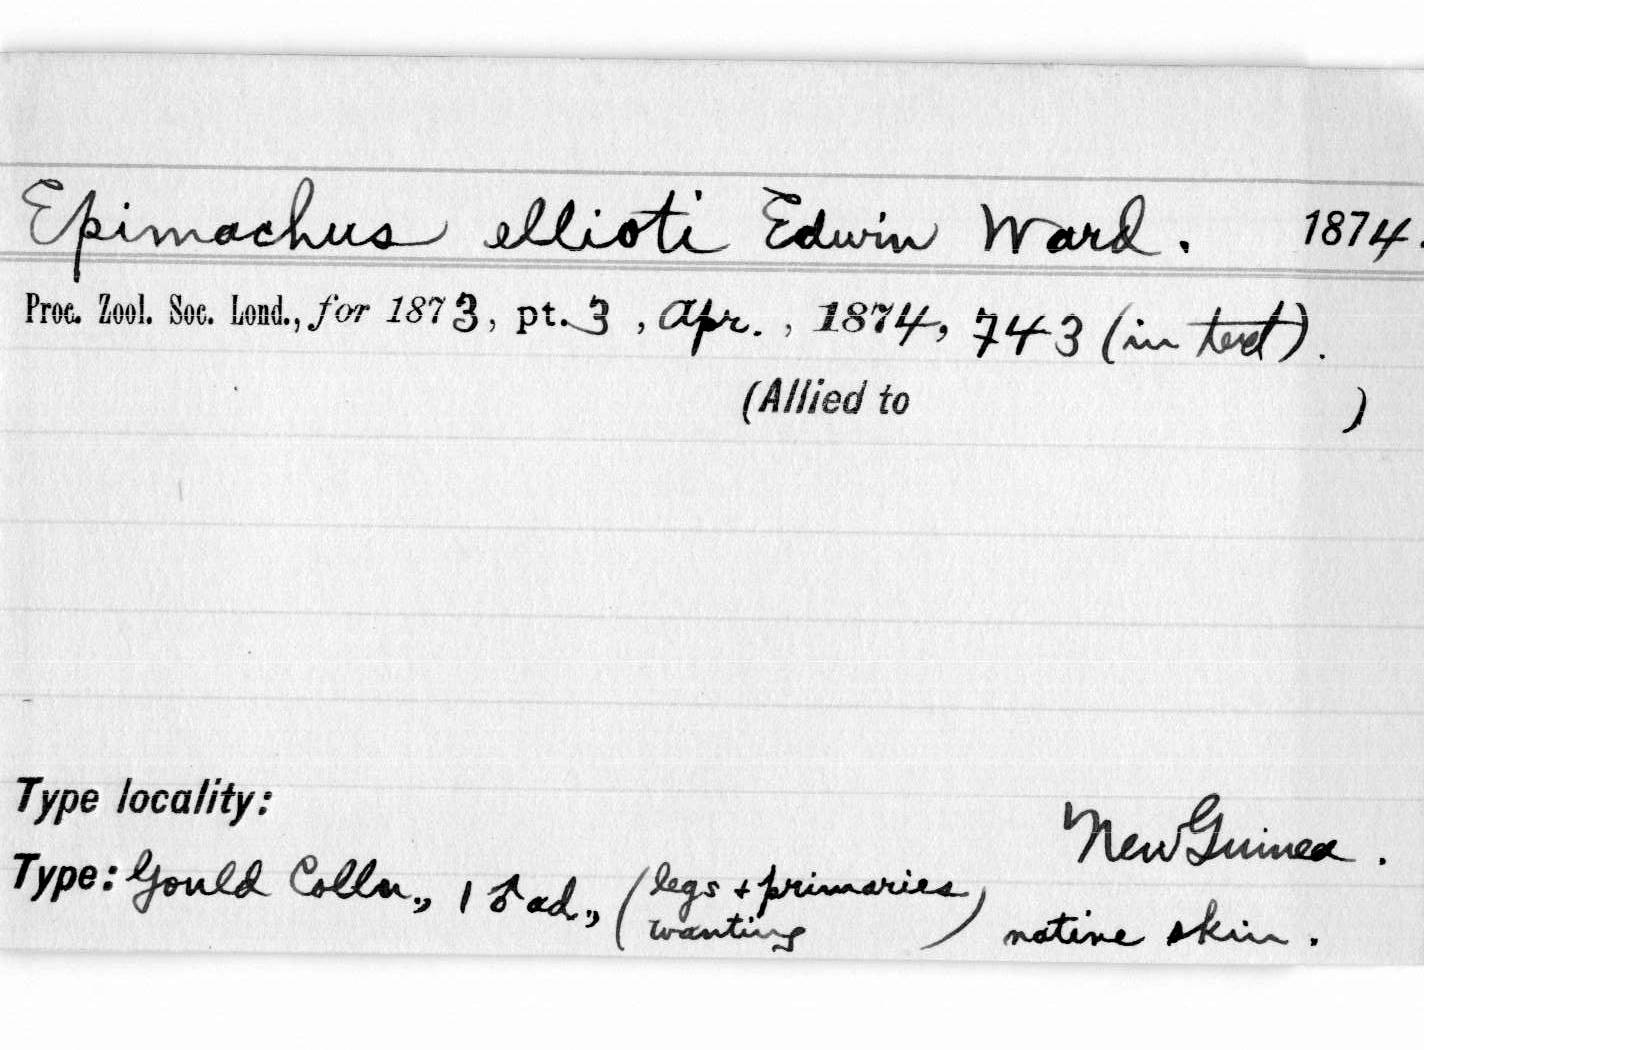 Epimachus ellioti Edwin Ward. 1874.
Proc. Zool. Soc. Lond., for 1873, pt. 3, Apr., 1874, 743 (in text).
(Allied to )
Type locality: New Guinea.
Type: Gould Colln., 1 ♂ ad., (legs + primaries wanting) native skin.